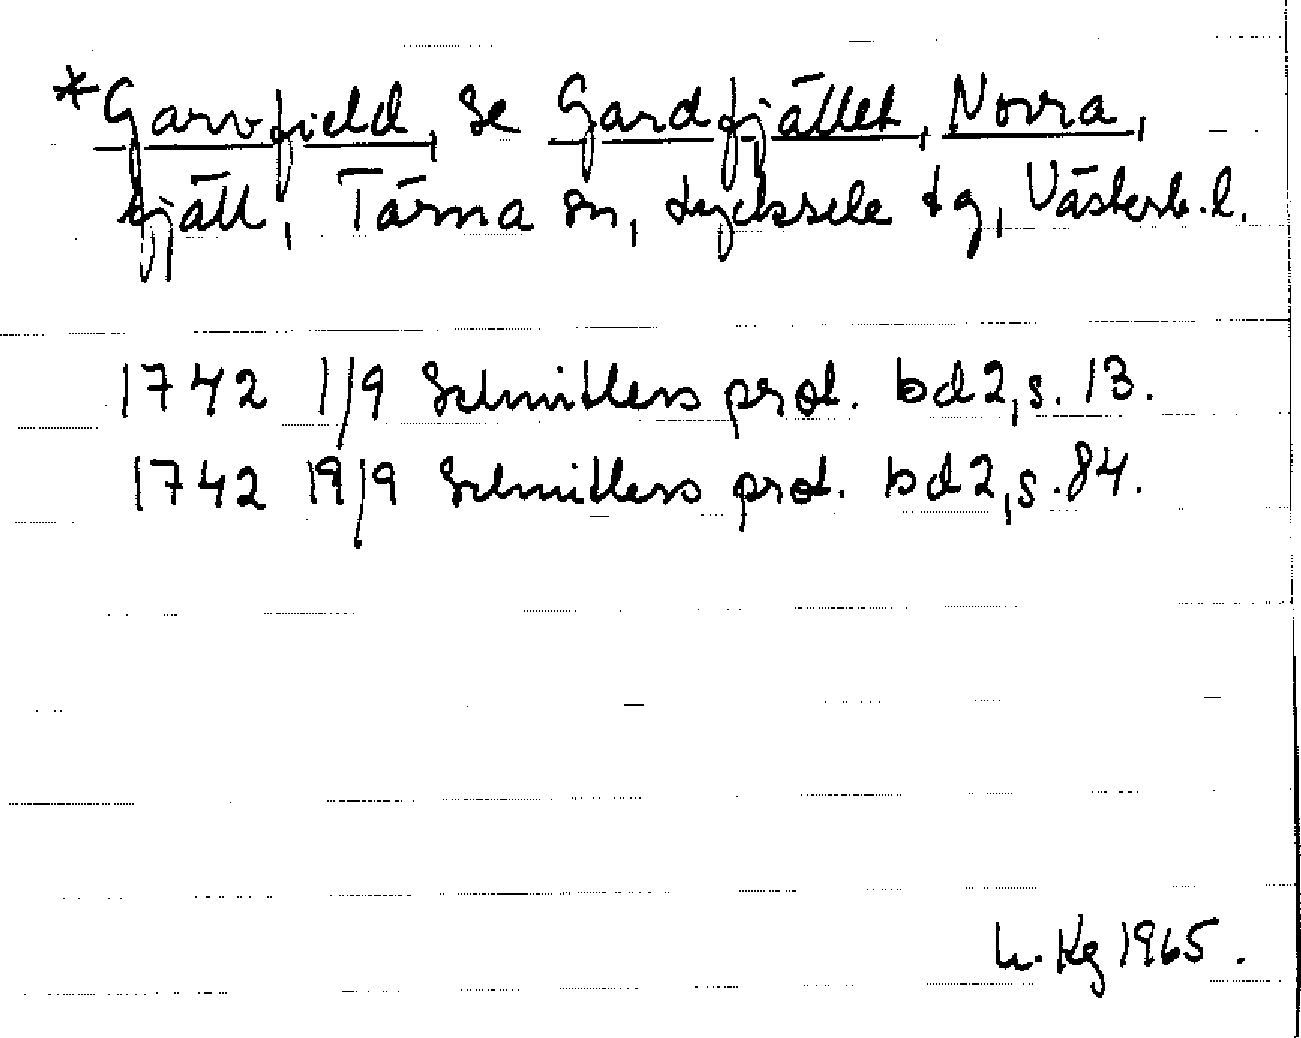 *Garvfjeld, se Gardfjället, Norra,
fjäll, Tärna sn, Lycksele tg, Västerb.l.
1742 1/9 Schnitlers prot. bd 2, s. 13.
1742 19/9 Schnitlers prot. bd 2, s. 84.
L. Kg 1965.